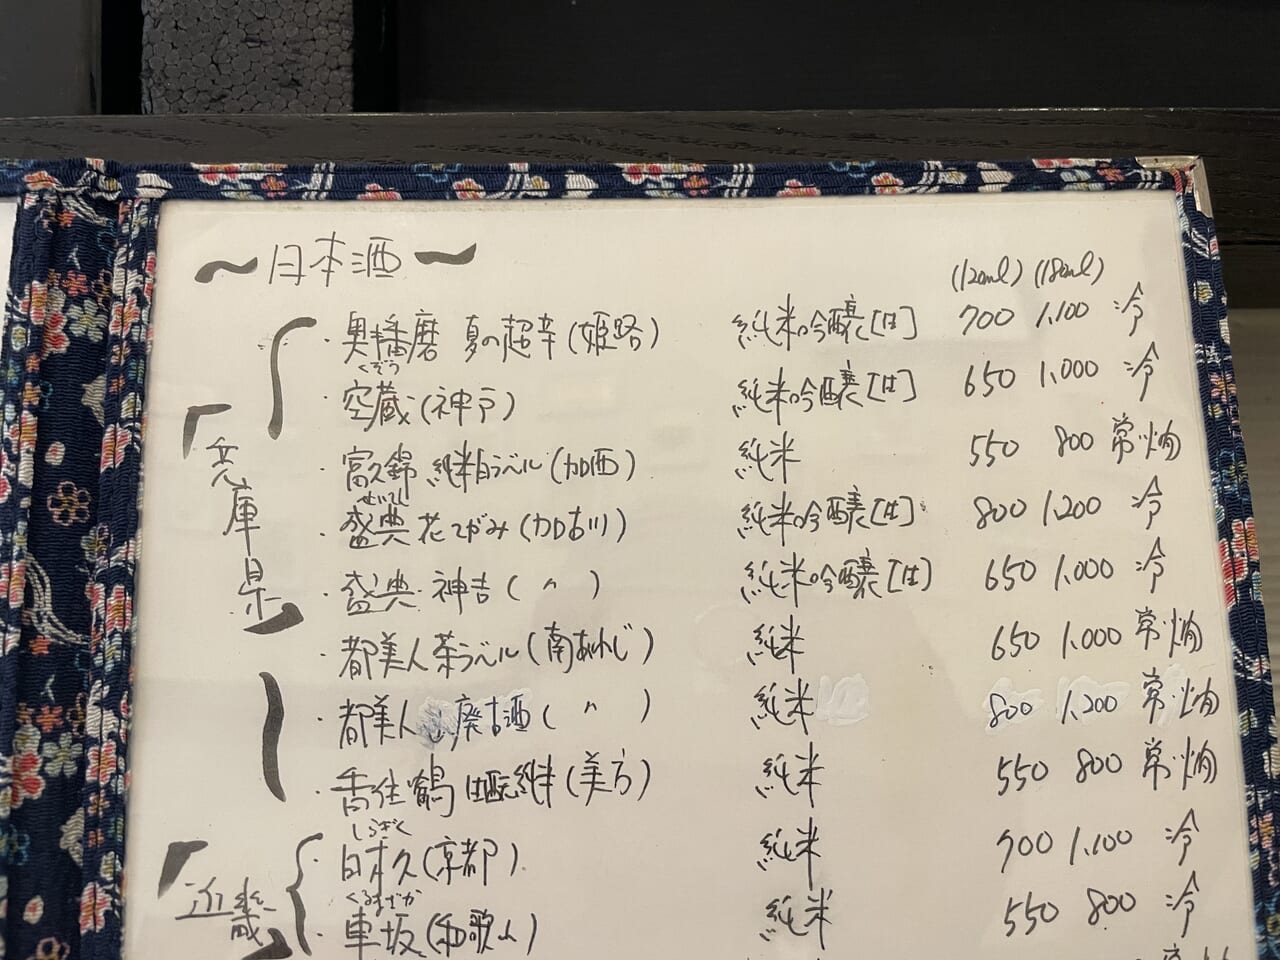 〜日本酒〜
(120ml) (180ml)
「兵庫県」
・奥播磨 夏の超辛(姫路) 純米吟醸[生] 700 1,100 冷
くぞう
・空蔵(神戸) 純米吟醸[生] 650 1,000 冷
・富久錦 純米白ラベル(加西) 純米 550 800 常・燗
せいてん
・盛典 花てがみ(加古川) 純米吟醸[生] 800 1,200 冷
・盛典 神吉(〃) 純米吟醸[生] 650 1,000 冷
・都美人 茶ラベル(南あわじ) 純米 650 1,000 常・燗
・都美人 廃古酒(〃) 純米 800 1,200 常・燗
・香住鶴 生酛純米(美方) 純米 550 800 常・燗
「近畿」
・日木久(京都) 純米 700 1,100 冷
くるまざか
・車坂(和歌山) 純米 550 800 冷